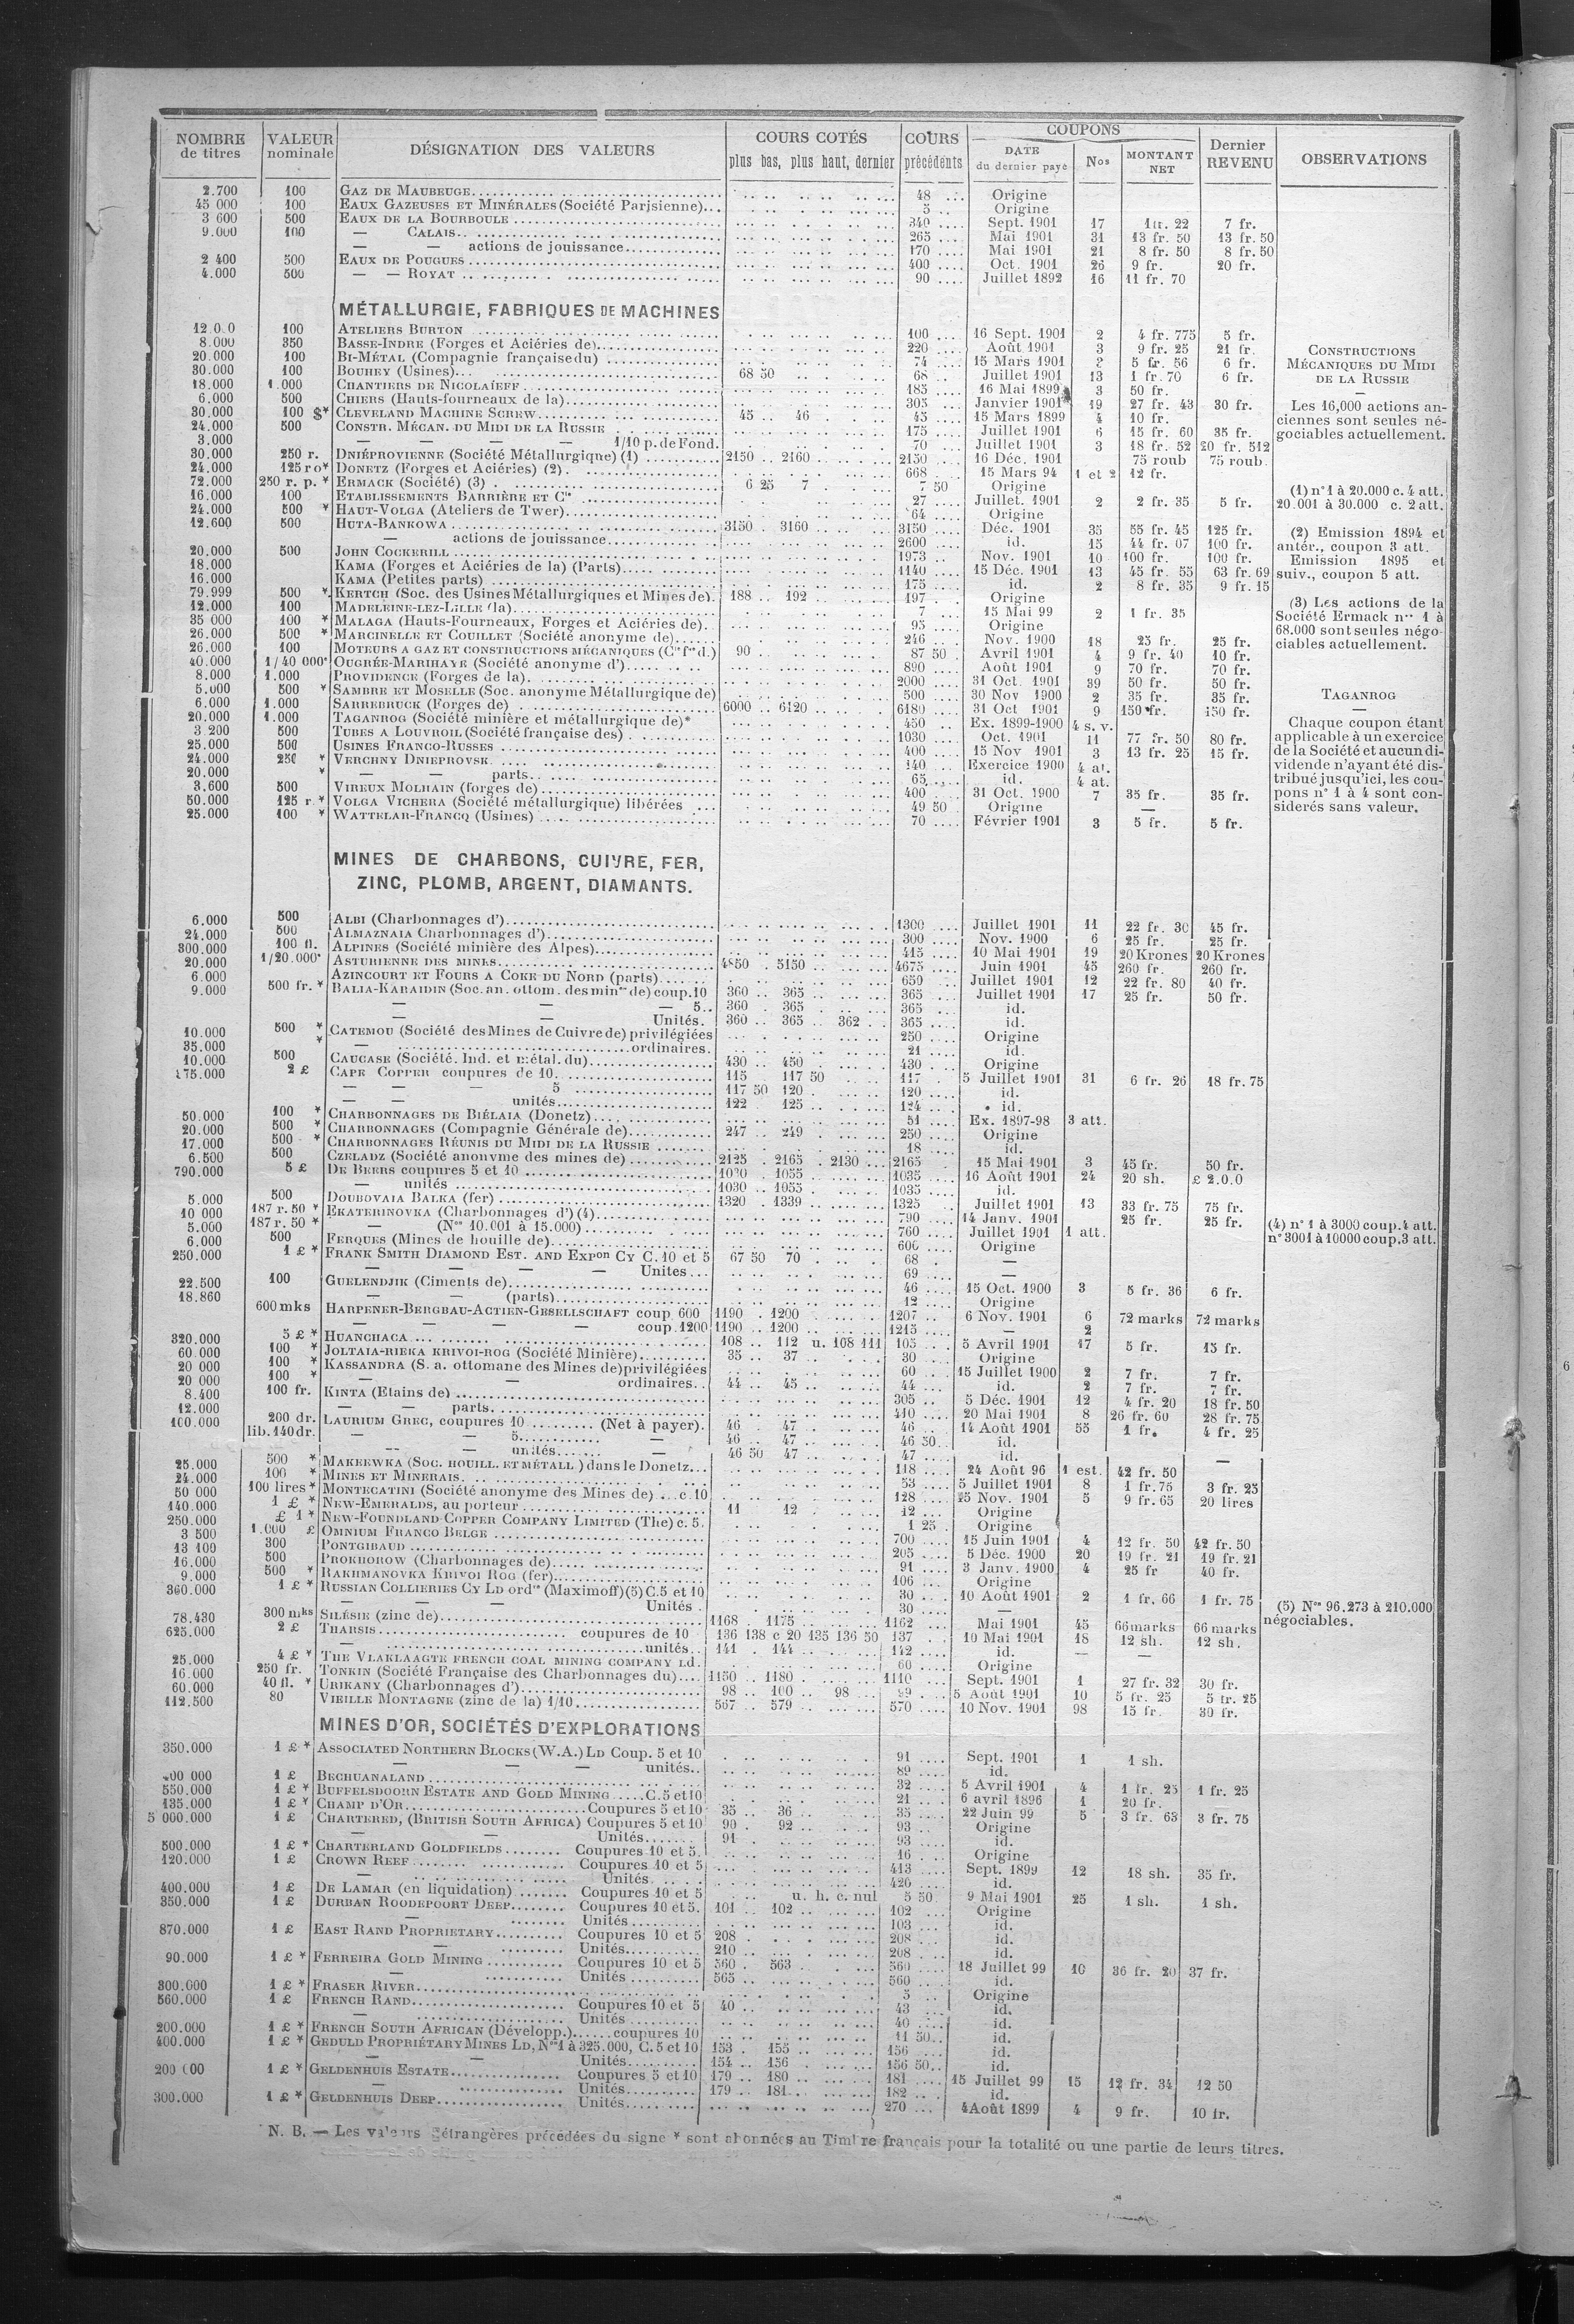 NOMBRE de titres VALEUR nominale DÉSIGNATION DES VALEURS COURS COTÉS plus bas, plus haut, dernier COURS précédents COUPONS DATE du dernier payé Nos MONTANT NET Dernier REVENU OBSERVATIONS
2.700 100 GAZ DE MAUBEUGE 48 Origine
45 000 100 EAUX GAZEUSES ET MINÉRALES (Société Parisienne) 5 Origine
3 600 500 EAUX DE LA BOURBOULE 340 Sept. 1901 17 1 fr. 22 7 fr.
9.000 100 — CALAIS 265 Mai 1901 31 13 fr. 50 13 fr. 50
— — actions de jouissance 170 Mai 1901 21 8 fr. 50 8 fr. 50
2 400 500 EAUX DE POUGUES 400 Oct. 1901 26 9 fr. 20 fr.
4.000 500 — — ROYAT 90 Juillet 1892 16 11 fr. 70
MÉTALLURGIE, FABRIQUES DE MACHINES
100 ATELIERS BURTON 100 16 Sept. 1901 2 4 fr. 775 5 fr.
8.000 350 BASSE-INDRE (Forges et Aciéries de) 220 Août 1901 3 9 fr. 25 21 fr.
20.000 100 BI-MÉTAL (Compagnie française du) 74 15 Mars 1901 5 fr. 56 6 fr.
30.000 100 BOUHEY (Usines) 68 50 68 Juillet 1901 13 1 fr. 70 6 fr.
18.000 1.000 CHANTIERS DE NICOLAÏEFF 185 16 Mai 1899 3 50 fr.
6.000 500 CHIERS (Hauts-fourneaux de la) 305 Janvier 1901 19 27 fr. 43 30 fr.
30.000 100 $* CLEVELAND MACHINE SCREW 45 46 45 15 Mars 1899 4 10 fr.
24.000 500 CONSTR. MÉCAN. DU MIDI DE LA RUSSIE 175 Juillet 1901 6 15 fr. 60 35 fr.
3.000 — — — — 1/10 p. de Fond. 70 Juillet 1901 3 18 fr. 52 20 fr. 512
30.000 250 r. DNIÉPROVIENNE (Société Métallurgique) (1) 2150 2160 2150 16 Déc. 1901 75 roub 75 roub.
24.000 125 r o* DONETZ (Forges et Aciéries) (2) 668 15 Mars 94 1 et 2 12 fr.
72.000 250 r. p. * ERMACK (Société) (3) 6 25 7 7 50 Origine
16.000 100 ETABLISSEMENTS BARRIÈRE ET Cie 27 Juillet. 1901 2 2 fr. 35 5 fr.
24.000 500 * HAUT-VOLGA (Ateliers de Twer) 64 Origine
12.600 500 HUTA-BANKOWA 3150 3160 3150 Déc. 1901 35 55 fr. 45 125 fr.
— actions de jouissance 2600 id. 15 44 fr. 07 100 fr.
20.000 500 JOHN COCKERILL 1973 Nov. 1901 10 100 fr. 100 fr.
18.000 KAMA (Forges et Aciéries de la) (Parts) 1140 15 Déc. 1901 13 45 fr. 55 63 fr. 69
16.000 KAMA (Petites parts) 175 id. 2 8 fr. 35 9 fr. 15
79.999 500 * KERTCH (Soc. des Usines Métallurgiques et Mines de) 188 192 197 Origine
12.000 100 MADELEINE-LEZ-LILLE (la) 7 15 Mai 99 2 1 fr. 35
35 000 100 * MALAGA (Hauts-Fourneaux, Forges et Aciéries de) 95 Origine
26.000 500 * MARCINELLE ET COUILLET (Société anonyme de) 246 Nov. 1900 18 25 fr. 25 fr.
26.000 100 MOTEURS A GAZ ET CONSTRUCTIONS MÉCANIQUES 90 87 50 Avril 1901 4 9 fr. 40 10 fr.
40.000 1/40 000e OUGRÉE-MARIHAYE (Société anonyme d') 890 Août 1901 9 70 fr. 70 fr.
8.000 1.000 PROVIDENCE (Forges de la) 2000 31 Oct. 1901 39 50 fr. 50 fr.
5.000 500 * SAMBRE ET MOSELLE (Soc. anonyme Métallurgique de) 500 30 Nov 1900 2 35 fr. 35 fr.
6.000 1.000 SARREBRUCK (Forges de) 6000 6120 6180 31 Oct 1901 9 150 fr. 150 fr.
20.000 1.000 TAGANROG (Société minière et métallurgique de)* 450 Ex. 1899-1900 4 s. v.
3 200 500 TUBES A LOUVROIL (Société française des) 1030 Oct. 1901 11 77 fr. 50 80 fr.
25.000 500 USINES FRANCO-RUSSES 400 15 Nov 1901 3 13 fr. 25 15 fr.
24.000 250 * VERCHNY DNIEPROVSK 140 Exercice 1900 4 at.
20.000 * — — parts 65 id. 4 at.
3.600 500 VIREUX MOLHAIN (forges de) 400 31 Oct. 1900 7 35 fr. 35 fr.
50.000 125 r * VOLGA VICHERA (Société métallurgique) libérées 49 50 Origine —
25.000 100 * WATTELAR-FRANCQ (Usines) 70 Février 1901 3 5 fr. 5 fr.
CONSTRUCTIONS
MÉCANIQUES DU MIDI
DE LA RUSSIE
—
Les 16,000 actions an-
ciennes sont seules né-
gociables actuellement.
(1) n° 1 à 20.000 c. 4 att.
20.001 à 30.000 c. 2 att.
(2) Emission 1894 et
antér., coupon 3 att.
Emission 1895 et
suiv., coupon 5 att.
(3) Les actions de la
Société Ermack nos 1 à
68.000 sont seules négo-
ciables actuellement.
TAGANROG
—
Chaque coupon étant
applicable à un exercice
de la Société et aucun di-
vidende n'ayant été dis-
tribué jusqu'ici, les cou-
pons n° 1 à 4 sont con-
siderés sans valeur.
MINES DE CHARBONS, CUIVRE, FER,
ZINC, PLOMB, ARGENT, DIAMANTS.
6.000 500 ALBI (Charbonnages d') 1300 Juillet 1901 11 22 fr. 30 45 fr.
24.000 500 ALMAZNAIA Charbonnages d') 300 Nov. 1900 6 25 fr. 25 fr.
300.000 100 fl. ALPINES (Société minière des Alpes) 415 10 Mai 1901 19 20 Krones 20 Krones
20.000 1/20.000e ASTURIENNE DES MINES 4850 5150 4675 Juin 1901 45 260 fr. 260 fr.
6.000 AZINCOURT ET FOURS A COKE DU NORD (parts) 650 Juillet 1901 12 22 fr. 80 40 fr.
9.000 500 fr. * BALIA-KARAIDIN (Soc. an. ottom. des mines de) coup. 10 360 365 365 Juillet 1901 17 25 fr. 50 fr.
— — — 5 360 365 365 id.
— — Unités. 360 365 362 365 id.
10.000 500 * CATEMOU (Société des Mines de Cuivre de) privilégiées 250 Origine
35.000 * — ordinaires. 21 id.
10.000 500 CAUCASE (Société. Ind. et métal. du) 430 450 430 Origine
175.000 2 £ CAPE COPPER coupures de 10 115 117 50 117 5 Juillet 1901 31 6 fr. 26 18 fr. 75
— — — 5 117 50 120 120 id.
— — unités 122 125 124 id.
50.000 100 * CHARBONNAGES DE BIÉLAIA (Donetz) 51 Ex. 1897-98 3 att.
20.000 500 * CHARBONNAGES (Compagnie Générale de) 247 249 250 Origine
17.000 500 * CHARBONNAGES RÉUNIS DU MIDI DE LA RUSSIE 18 id.
6.500 500 CZELADZ (Société anonyme des mines de) 2125 2165 2130 2165 15 Mai 1901 3 45 fr. 50 fr.
790.000 5 £ DE BEERS coupures 5 et 10 1030 1055 1035 16 Août 1901 24 20 sh. £ 2.0.0
— unités 1030 1055 1035 id.
5.000 500 DOUBOVAIA BALKA (fer) 1320 1339 1325 Juillet 1901 13 33 fr. 75 75 fr.
10 000 187 r. 50 * EKATERINOVKA (Charbonnages d') (4) 790 14 Janv. 1901 25 fr. 25 fr.
5.000 187 r. 50 * — (Nos 10.001 à 15.000) 760 Juillet 1901 1 att.
6.000 500 FERQUES (Mines de houille de) 600 Origine
250.000 1 £ * FRANK SMITH DIAMOND EST. AND EXPon CY C. 10 et 5 67 50 70 68 —
— — — — Unites 69 —
22.500 100 GUELENDJIK (Ciments de) 46 15 Oct. 1900 3 5 fr. 36 6 fr.
18.860 — — (parts) 12 Origine
600 mks HARPENER-BERGBAU-ACTIEN-GESELLSCHAFT coup 600 1190 1200 1207 6 Nov. 1901 6 72 marks 72 marks
— — — — coup. 1200 1190 1200 1215 — 2
320.000 5 £ * HUANCHACA 108 112 u. 108 111 105 5 Avril 1901 17 5 fr. 15 fr.
60.000 100 * JOLTAIA-RIEKA KRIVOI-ROG (Société Minière) 35 37 30 Origine
20 000 100 * KASSANDRA (S. a. ottomane des Mines de) privilégiées 60 15 Juillet 1900 2 7 fr. 7 fr.
20 000 100 * — — ordinaires 44 45 44 id. 2 7 fr. 7 fr.
8.400 100 fr. KINTA (Etains de) 305 5 Déc. 1901 12 4 fr. 20 18 fr. 50
12.000 — — parts. 410 20 Mai 1901 8 26 fr. 60 28 fr. 75
100.000 200 dr. LAURIUM GREC, coupures 10 (Net à payer). 46 47 46 14 Août 1901 55 1 fr. 4 fr. 25
lib. 140 dr. — — 5 — 46 47 46 50 id.
— — unités — 46 50 47 47 id. —
25.000 500 * MAKEEWKA (SOC. HOUILL. ET MÉTALL) dans le Donetz 118 24 Août 96 1 est. 42 fr. 50
24.000 100 * MINES ET MINERAIS 53 5 Juillet 1901 8 1 fr. 75 3 fr. 25
50 000 100 lires * MONTECATINI (Société anonyme des Mines de) c 10 128 25 Nov. 1901 5 9 fr. 65 20 lires
140.000 1 £ * NEW-EMERALDS, au porteur 11 12 12 Origine
250.000 £ 1 * NEW-FOUNDLAND COPPER COMPANY LIMITED (The) c. 5. 1 25 Origine
3 500 1.000 £ OMNIUM FRANCO BELGE 700 15 Juin 1901 4 12 fr. 50 42 fr. 50
13 100 300 PONTGIBAUD 205 5 Déc. 1900 20 19 fr. 21 19 fr. 21
16.000 500 PROKHOROW (Charbonnages de) 91 3 Janv. 1900 4 25 fr 40 fr.
9.000 500 * RAKHMANOVKA KRIVOI ROG (fer) 106 Origine
360.000 1 £ * RUSSIAN COLLIERIES CY LD ordres (Maximoff) (5) C. 5 et 10 30 10 Août 1901 2 1 fr. 66 1 fr. 75
— — — Unités 30 —
78.430 300 mks SILÉSIE (zinc de) 1168 1175 1162 Mai 1901 45 66 marks 66 marks
625.000 2 £ THARSIS coupures de 10 136 138 c 20 135 136 50 137 10 Mai 1901 18 12 sh. 12 sh.
— unités 141 144 142 id. — —
25.000 4 £ * THE VLAKLAAGTE FRENCH COAL MINING COMPANY Ld. 60 Origine
16.000 250 fr. TONKIN (Société Française des Charbonnages du) 1150 1180 1110 Sept. 1901 1 27 fr. 32 30 fr.
60.000 40 fl. * URIKANY (Charbonnages d') 98 100 98 99 5 Août 1901 10 5 fr. 25 5 fr. 25
112.500 80 VIEILLE MONTAGNE (zinc de la) 1/10 567 579 570 10 Nov. 1901 98 15 fr. 30 fr.
(4) n° 1 à 3000 coup. 4 att.
n° 3001 à 10000 coup. 3 att.
(5) Nos 96.273 à 210.000
négociables.
MINES D'OR, SOCIÉTÉS D'EXPLORATIONS
350.000 1 £ * ASSOCIATED NORTHERN BLOCKS (W.A.) LD Coup. 5 et 10 91 Sept. 1901 1 1 sh.
— — unités 89 id.
400 000 1 £ BECHUANALAND 32 5 Avril 1901 4 1 fr. 25 1 fr. 25
550.000 1 £ * BUFFELSDOORN ESTATE AND GOLD MINING C. 5 et 10 21 6 avril 1896 1 20 fr. —
135.000 1 £ * CHAMP D'OR Coupures 5 et 10 35 36 35 22 Juin 99 5 3 fr. 63 3 fr. 75
5 000.000 1 £ CHARTERED, (BRITISH SOUTH AFRICA) Coupures 5 et 10 90 92 93 Origine
— — Unités 91 93 id.
500.000 1 £ * CHARTERLAND GOLDFIELDS Coupures 10 et 5. 16 Origine
120.000 1 £ CROWN REEF Coupures 10 et 5 413 Sept. 1899 12 18 sh. 35 fr.
— Unités 420 id.
400.000 1 £ DE LAMAR (en liquidation) Coupures 10 et 5 u. h. c. nul 5 50 9 Mai 1901 25 1 sh. 1 sh.
350.000 1 £ DURBAN ROODEPOORT DEEP Coupures 10 et 5. 101 102 102 Origine
— Unités 103 id.
870.000 1 £ EAST RAND PROPRIETARY Coupures 10 et 5 208 208 id.
— Unités 210 208 id.
90.000 1 £ * FERREIRA GOLD MINING Coupures 10 et 5 560 563 560 18 Juillet 99 10 36 fr. 20 37 fr.
— Unités 565 560 id.
300.000 1 £ * FRASER RIVER 5 Origine
560.000 1 £ FRENCH RAND Coupures 10 et 5 40 43 id.
— Unités 40 id.
200.000 1 £ * FRENCH SOUTH AFRICAN (Développ.) coupures 10 11 50 id.
400.000 1 £ * GEDULD PROPRIÉTARY MINES LD, Nos 1 à 325.000, C. 5 et 10 153 155 156 id.
— — Unités 154 156 156 50 id.
200 000 1 £ * GELDENHUIS ESTATE Coupures 5 et 10 179 180 181 15 Juillet 99 15 12 fr. 34 12 50
— Unités 179 181 182 id.
300.000 1 £ * GELDENHUIS DEEP Unités 270 4 Août 1899 4 9 fr. 10 fr.
N. B. — Les valeurs étrangères précédées du signe * sont abonnées au Timbre français pour la totalité ou une partie de leurs titres.